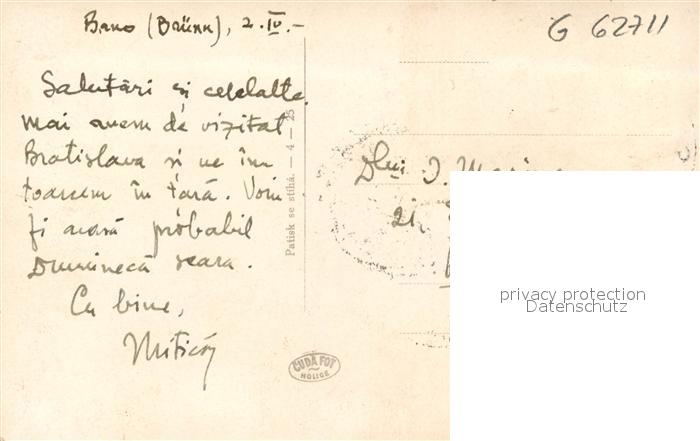 Brno (Brünn), 2.IV.-
G 62711
Salutări și celelalte.
Mai avem de vizitat
Bratislava și ne în
toarcem în țară. Voiu
fi acasă probabil
Duminecă seara.
Cu bine,
Mitică
Patisk se stíhá. — 4 — 25
Dlui I.
21
ČUDA FOT
HOLICE
privacy protection
Datenschutz